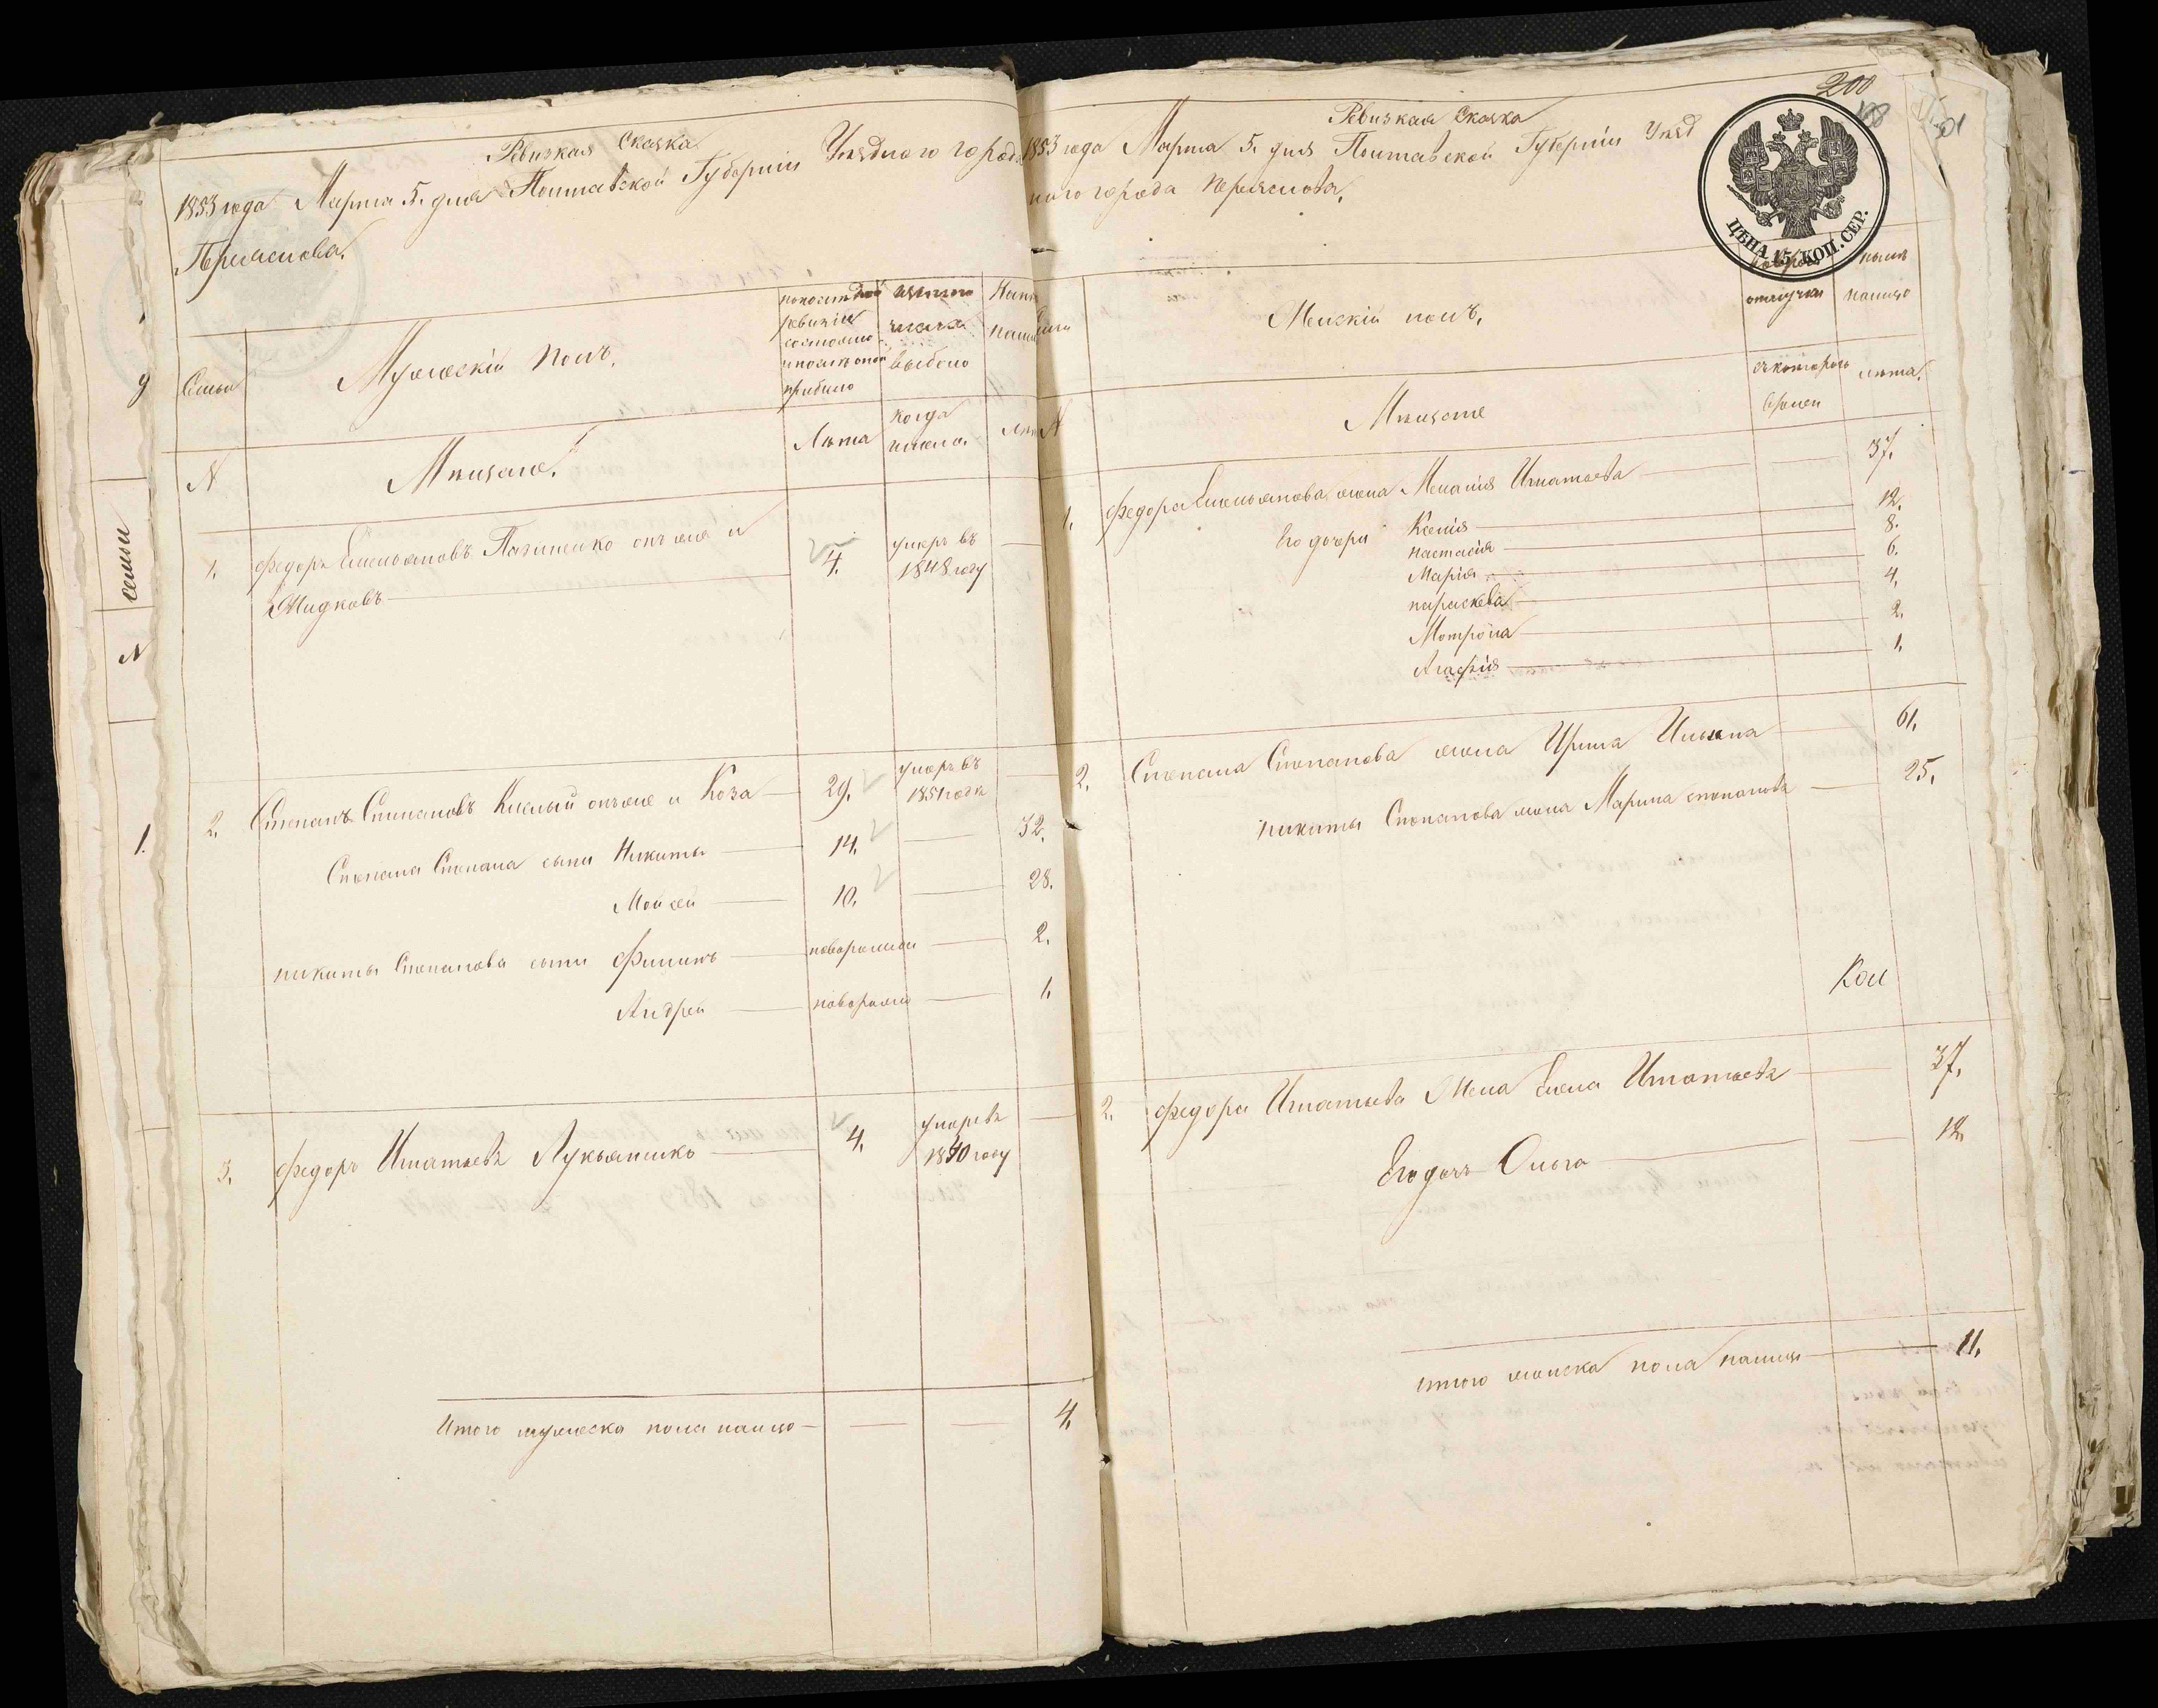 Ревизкая Сказка
1853 года Марта 5. дня Полтавской Губернии Уѣзднаго город.
Переяслова.
9
Семьи
Мужескій Полъ.
по послѣдной
ревизіи
состояло
и послѣ оной
прибыло
изъ того
числа
выбыло
Нынѣ
N
Мѣщане.
Лѣта
когда
имена
семьи
N
1.
1. Федоръ Емельяновъ
4.
умеръ въ
1848 году
2. Степанъ Степановъ Кислый онъ же и Коза
29.
умеръ въ
1851 годѣ
Степана Степана сыни Никиты
14.
32.
Мойсей
10.
28.
никиты Степанова сыни Филипъ
новорожден
2.
Андрей
новорожде
1.
3. Федоръ Игнатьевъ Лукьяненко
4.
умеръ въ
1840 году
Итого мужеска пола налицо
4.
200
Ревизкая Сказка
1853 года Марта 5. дня Полтавской Губерніи Уѣзд
наго города Переяслова.
ЦѢНА 15 КОП. СЕР.
Женскій полъ.
отлучки
нынѣ
налицо
N
Мѣщане
съ котораго
времен
лѣта.
1. Федора Емельянова жена Меланія Игнатьева
37.
Его дочери Ксенія
12.
настасія
8.
Марія
6.
параскева
4.
Мотрона
2.
Агафія
1.
2. Степана Степанова жена Ирина
61.
никиты Степанова жена Марина степанова
25.
Коп
2. Федора Игнатьева Жена Елена Игнатьева
37.
Его дочь Ольга
12.
итого женска пола налицо
11.